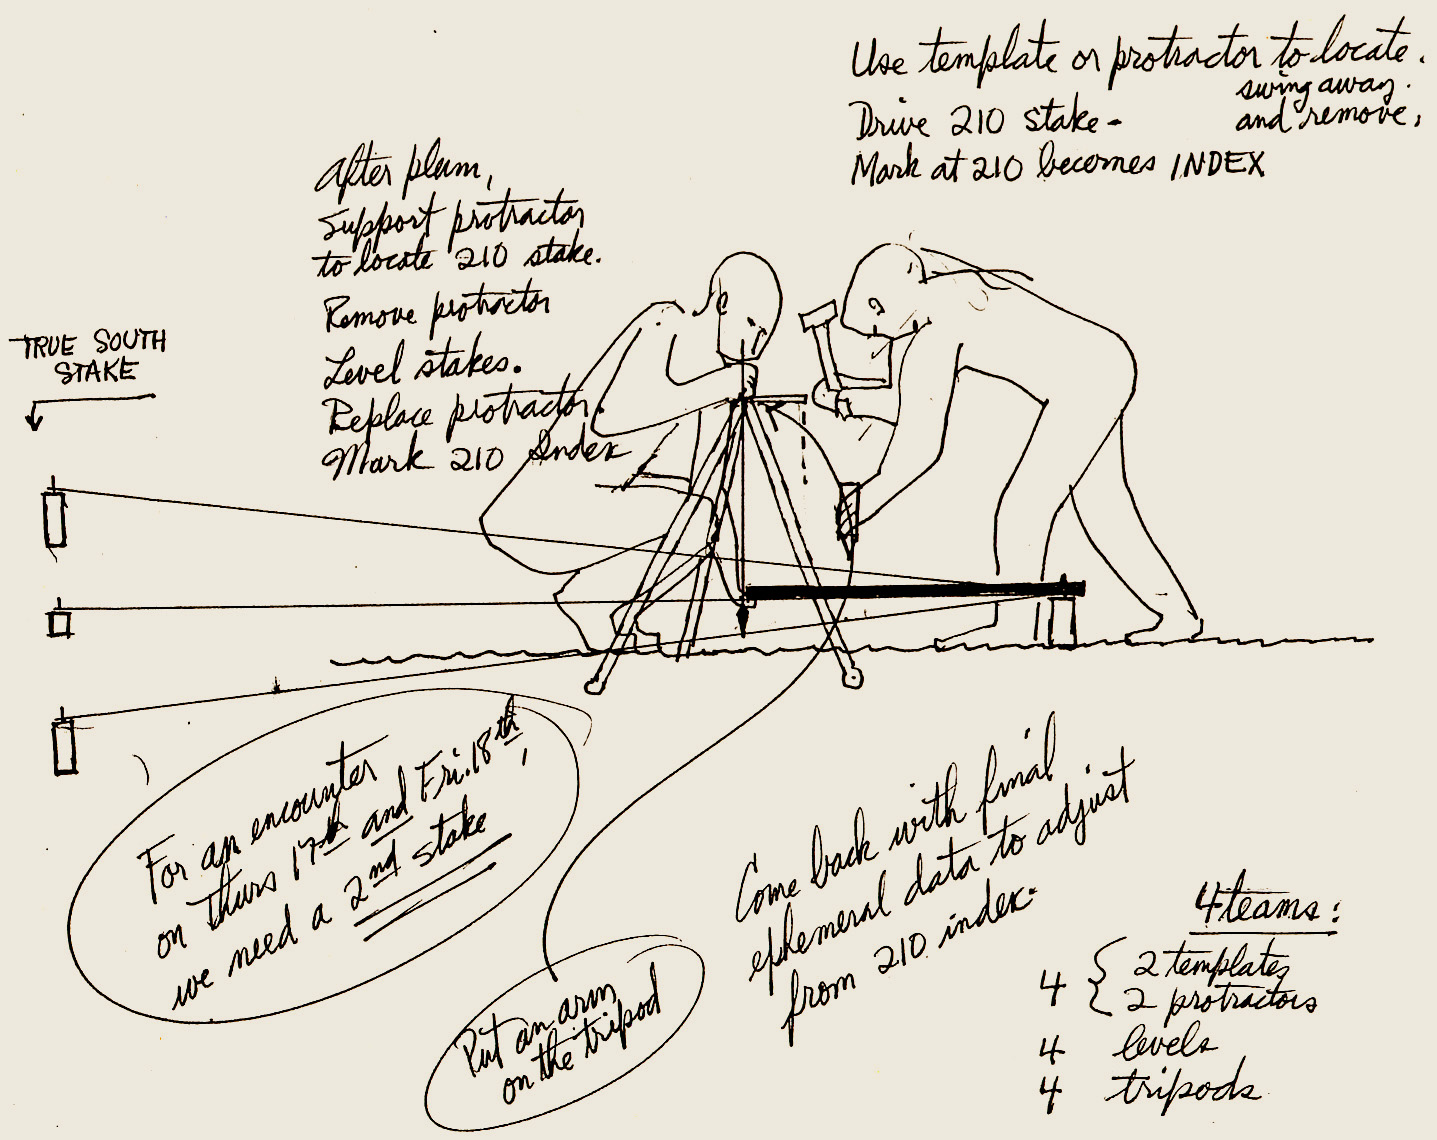 Use template or protractor to locate.
swing away.
Drive 210 stake - and remove,
Mark at 210 becomes INDEX
After plum,
Support protractor
to locate 210 stake.
Remove protractor
Level stakes.
Replace protractor.
Mark 210 Index
TRUE SOUTH
STAKE
For an encounter
on Thurs 17th and Fri. 18th,
we need a 2nd stake
Put an arm
on the tripod
Come back with final
ephemeral data to adjust
from 210 index.
4 teams:
4 { 2 templates
2 protractors
4 levels
4 tripods